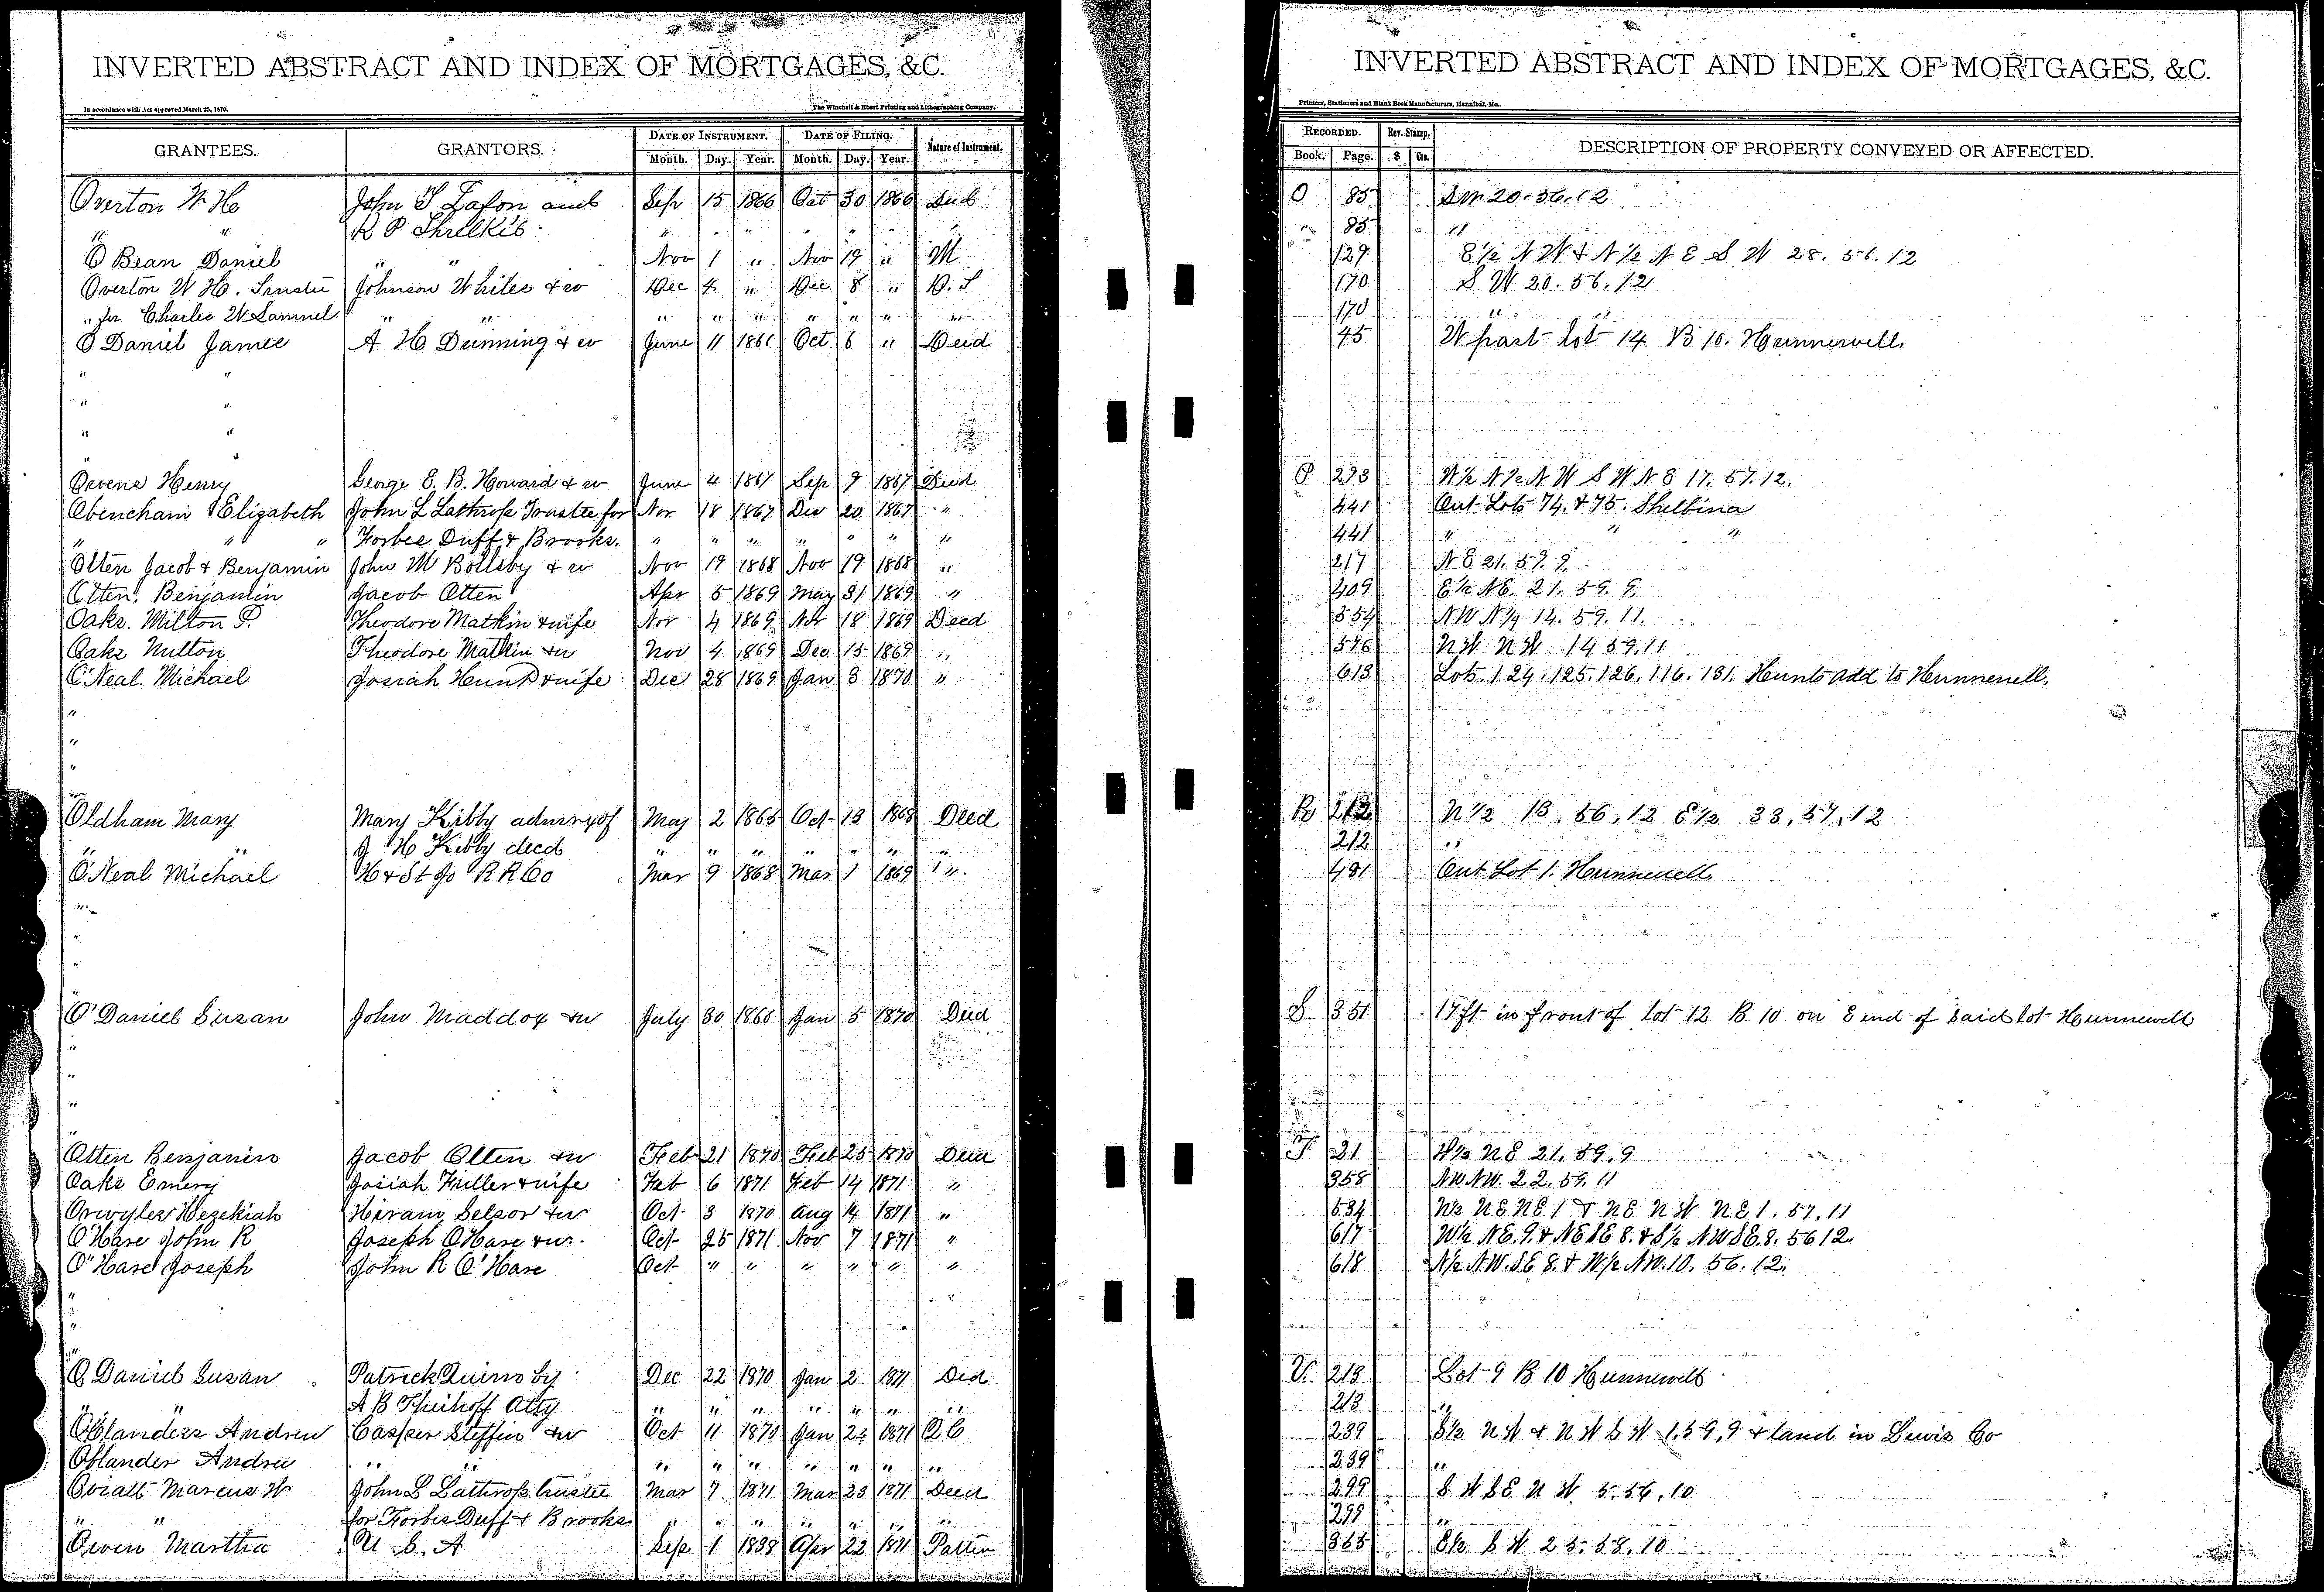 INVERTED ABSTRACT AND INDEX OF MORTGAGES, &C.
In accordance with Act approved March 25, 1870. The Winchell & Ebert Printing and Lithographing Company,
GRANTEES. GRANTORS. DATE OF INSTRUMENT. DATE OF FILING. Nature of Instrument.
Month. Day. Year. Month. Day. Year.
Overton W H John T and Sep 15 1866 Oct 30 1866
" " R P " " " " " "
O Bean Daniel " " Nov 1 " Nov 19 " M
Overton W H. Trustee Johnson White & w Dec 4 " Dec 8 " D. T
" for Charles W Samuel " " " " " " " "
O Daniel James A H Dunning & w June 11 1866 Oct 6 " Deed
" "
" "
" "
"
Owens Henry George E. B. Howard & w June 4 1867 Sep 9 1867 Deed
Elizabeth John L Lathrop Trustee for Nov 18 1867 Dec 20 1867 "
" " " Forbes Duff & Brooks. " " " " " " "
Otten Jacob & Benjamin John M & w Nov 19 1868 Nov 19 1868 "
Otten, Benjamin Jacob Otten Apr 5 1869 May 31 1869 "
Oaks. Milton P. Theodore Matkin & wife Nov 4 1869 Nov 18 1869 Deed
Oaks Milton Theodore Matkin & w Nov 4 1869 Dec 15 1869 "
O'Neal. Michael Josiah Hunt & wife Dec 28 1869 Jan 3 1870 "
"
"
"
"
Oldham Mary Mary Kibby of May 2 1865 Oct 13 1868 Deed
" " J H Kibby decd " " " " " " "
O'Neal Michael H & St Jo R R Co Mar 9 1868 Mar 1 1869 "
"
"
"
"
O'Daniel Susan John Maddox & w July 30 1866 Jan 5 1870 Deed
"
"
"
"
Otten Benjamin Jacob Otten & w Feb 21 1870 Feb 25 1870 Deed
Oaks Emery Josiah Fuller & wife Feb 6 1871 Feb 14 1871 "
Hezekiah Hiram Selsor & w Oct 3 1870 Aug 14 1871 "
O'Hare John R Joseph O'Hare & w. Oct 25 1871 Nov 7 1871 "
O'Hare Joseph John R O'Hare Oct " " " " " "
"
"
"
O Daniel Susan Patrick Quinn by Dec 22 1870 Jan 2 1871 Deed
" " A B Theihoff Atty " " " " " " "
Andrew Casper Steffin & w Oct 11 1870 Jan 24 1871 Q C
Oblander Andrew " " " " " " " " "
Oviatt Marcus W John L Lathrop trustee Mar 7 1871 Mar 23 1871 Deed
" " for Forbes Duff & Brooks " " " " " " "
Owen Martha U. S. A Sep 1 1838 Apr 22 1871
INVERTED ABSTRACT AND INDEX OF MORTGAGES, &C.
Printers, Stationers and Blank Book Manufacturers, Hannibal, Mo.
RECORDED. Rev. Stamp. DESCRIPTION OF PROPERTY CONVEYED OR AFFECTED.
Book. Page. $ Cts.
O 85 SW 20. 56. 12
" 85 "
129 E 1/2 N W & N 1/2 N E S W 28. 56. 12
170 S W 20. 56. 12
170 "
45 W part lot 14 B 10. Hunnewell.
P 293 W 1/2 N 1/2 N W S W N E 17. 57. 12.
441 Out Lots 74. & 75. Shelbina
441 " " "
217 N E 21. 59. 9.
409 E 1/2 N E. 21. 59. 9
554 N W N 1/4 14. 59. 11.
576 N W N W 14 59. 11
613 Lots. 124. 125. 126. 116. 131. Hunts add. to Hunnewell.
R 212 N 1/2 13. 56. 12 E 1/2 33. 57. 12
212 "
481 Out Lot 1. Hunnewell.
S 351 17 ft in front of lot 12 B 10 on E end of said lot Hunnewell
T 21 W 1/2 N E 21. 59. 9
358 N W N W. 22. 59. 11
534 N 1/2 N E N E 1 & N E N W N E 1. 57. 11
617 W 1/2 N E. 9. & N E S E 8. & S 1/2 N W S E. 8. 56 12.
618 N 1/2 N W. S E 8. & W 1/2 N W. 10. 56. 12.
U. 213 Lot 9 B 10 Hunnewell
213 "
239 S 1/2 N W & N W S W 1. 59. 9 & land in Lewis Co
239 "
299 S W S E N W 5. 56. 10
299 "
365 E 1/2 S W 25. 58. 10